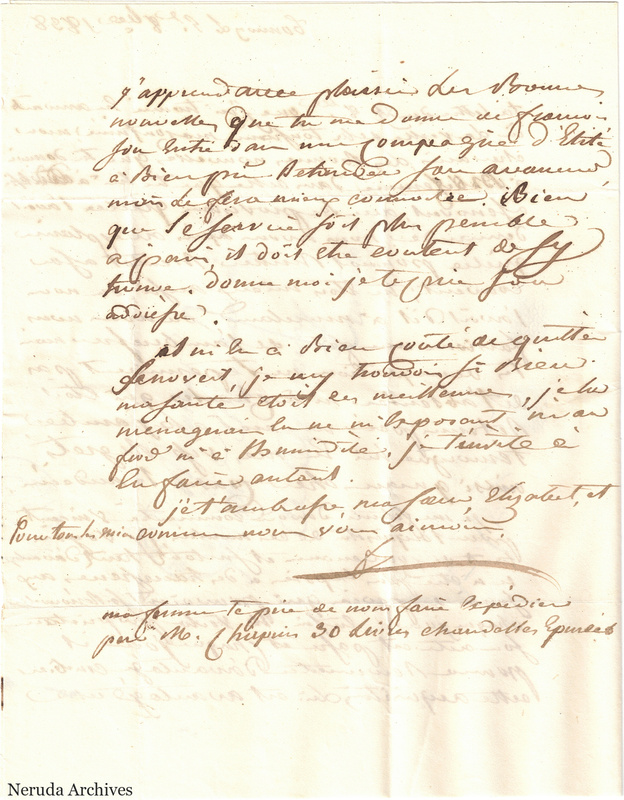 J'apprend avec plaisir les Bonnes
nouvelles que tu me donne de francois
son Entré dans une compagnie d'Elite
a Bien pû Retarder son avancemt
mais le fera mieux connoitre. Bien
que le service soit plus penible
a paris, il doit etre content de s'y
trouve. donne moi je te prie son
adresse.
il m'en a Bien couté de quitter
Genovert, je m'y trouvois si Bien
ma santé etoit des meilleures, je la
menagerai en ne m'exposant ni au
froid ni a l'humidité. je t'invite à
En faire autant.
je t'ambrasse, ma soeur, Elizabet, et
Pour tous les miens comme nous vous aimons.
ma femme te prie de nous faire Expédier
par M. Chapuis 30 Livres chandelles Epurées
Neruda Archives